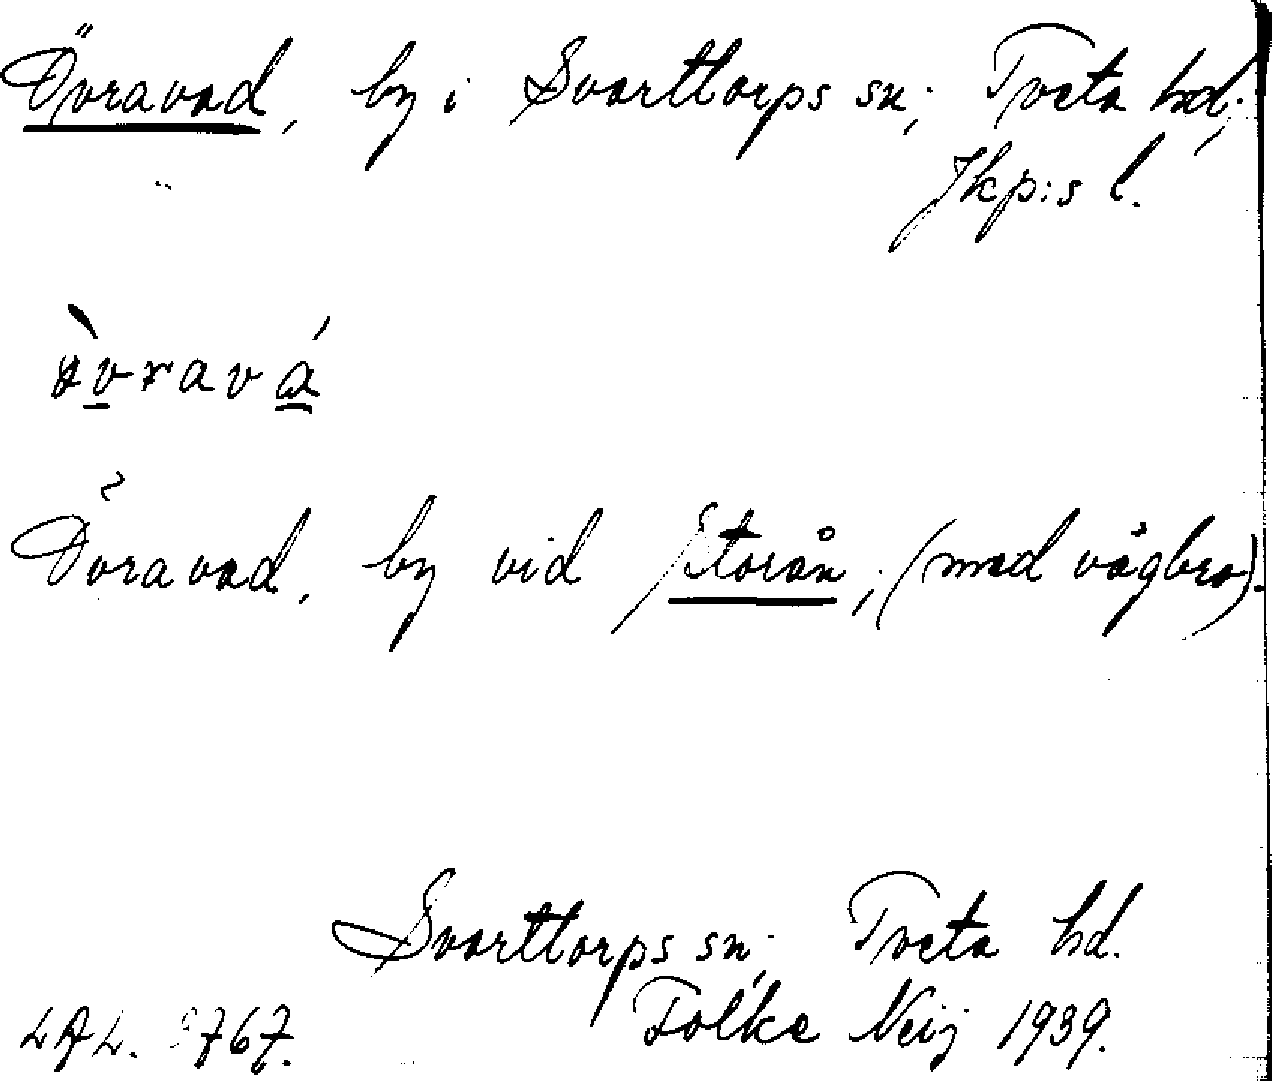 Övravad, by i Svarttorps sn; Tveta hd;
Jkp:s l.
Övravad, by vid Storån; (med vägbro).
Svarttorps sn; Tveta hd.
Folke Neij 1939.